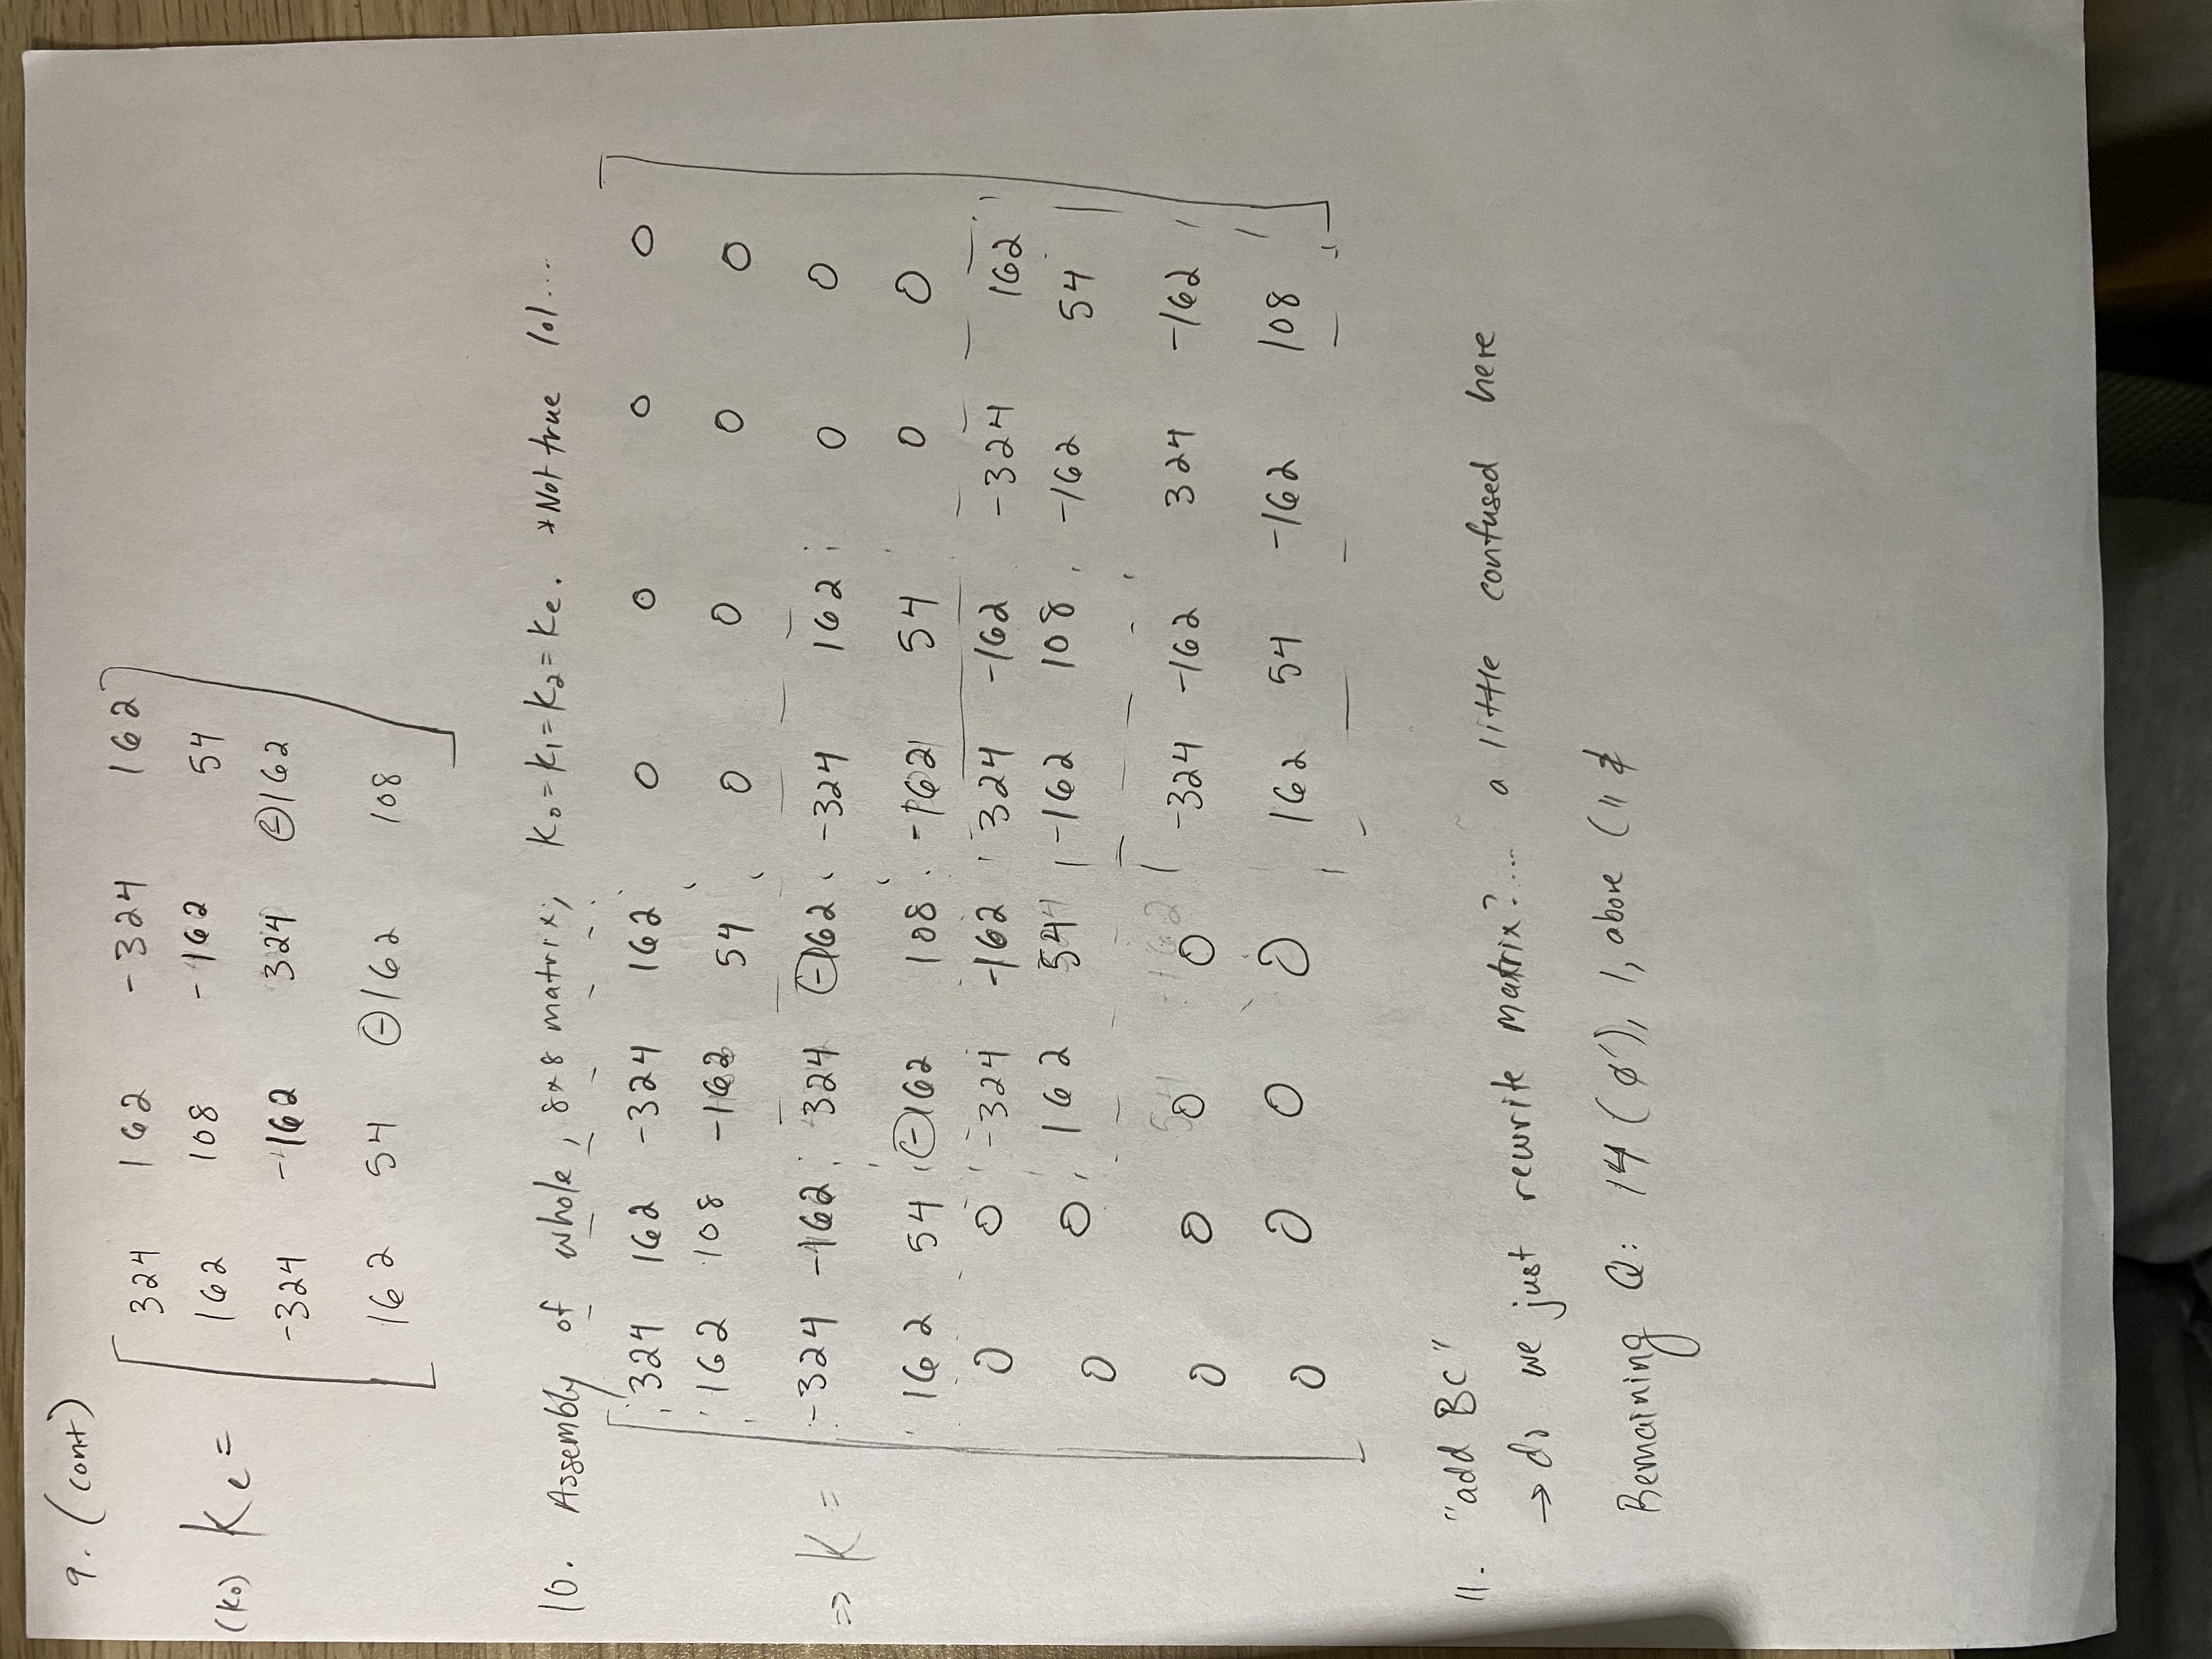 9. (cont)
324 162 -324 162
162 108 -162 54
(K₀) Ke =
-324 -162 324 ⊖162
162 54 ⊖162 108
10. Assembly of whole, 8x8 matrix; K₀ = K₁ = K₂ = Ke. *Not true lol...
324 162 -324 162 0 0 0 0
162 108 -162 54 0 0 0 0
⇒ K = -324 -162 324 ⊖162 -324 162 0 0
162 54 ⊖162 108 -162 54 0 0
0 0 -324 -162 324 -162 -324 162
0 0 162 54 -162 108 -162 54
0 0 0 0 -324 -162 324 -162
0 0 0 0 162 54 -162 108
11. "add BC"
→ do we just rewrite matrix?... a little confused here
Remaining Q: 14 (ø'), 1, above (11